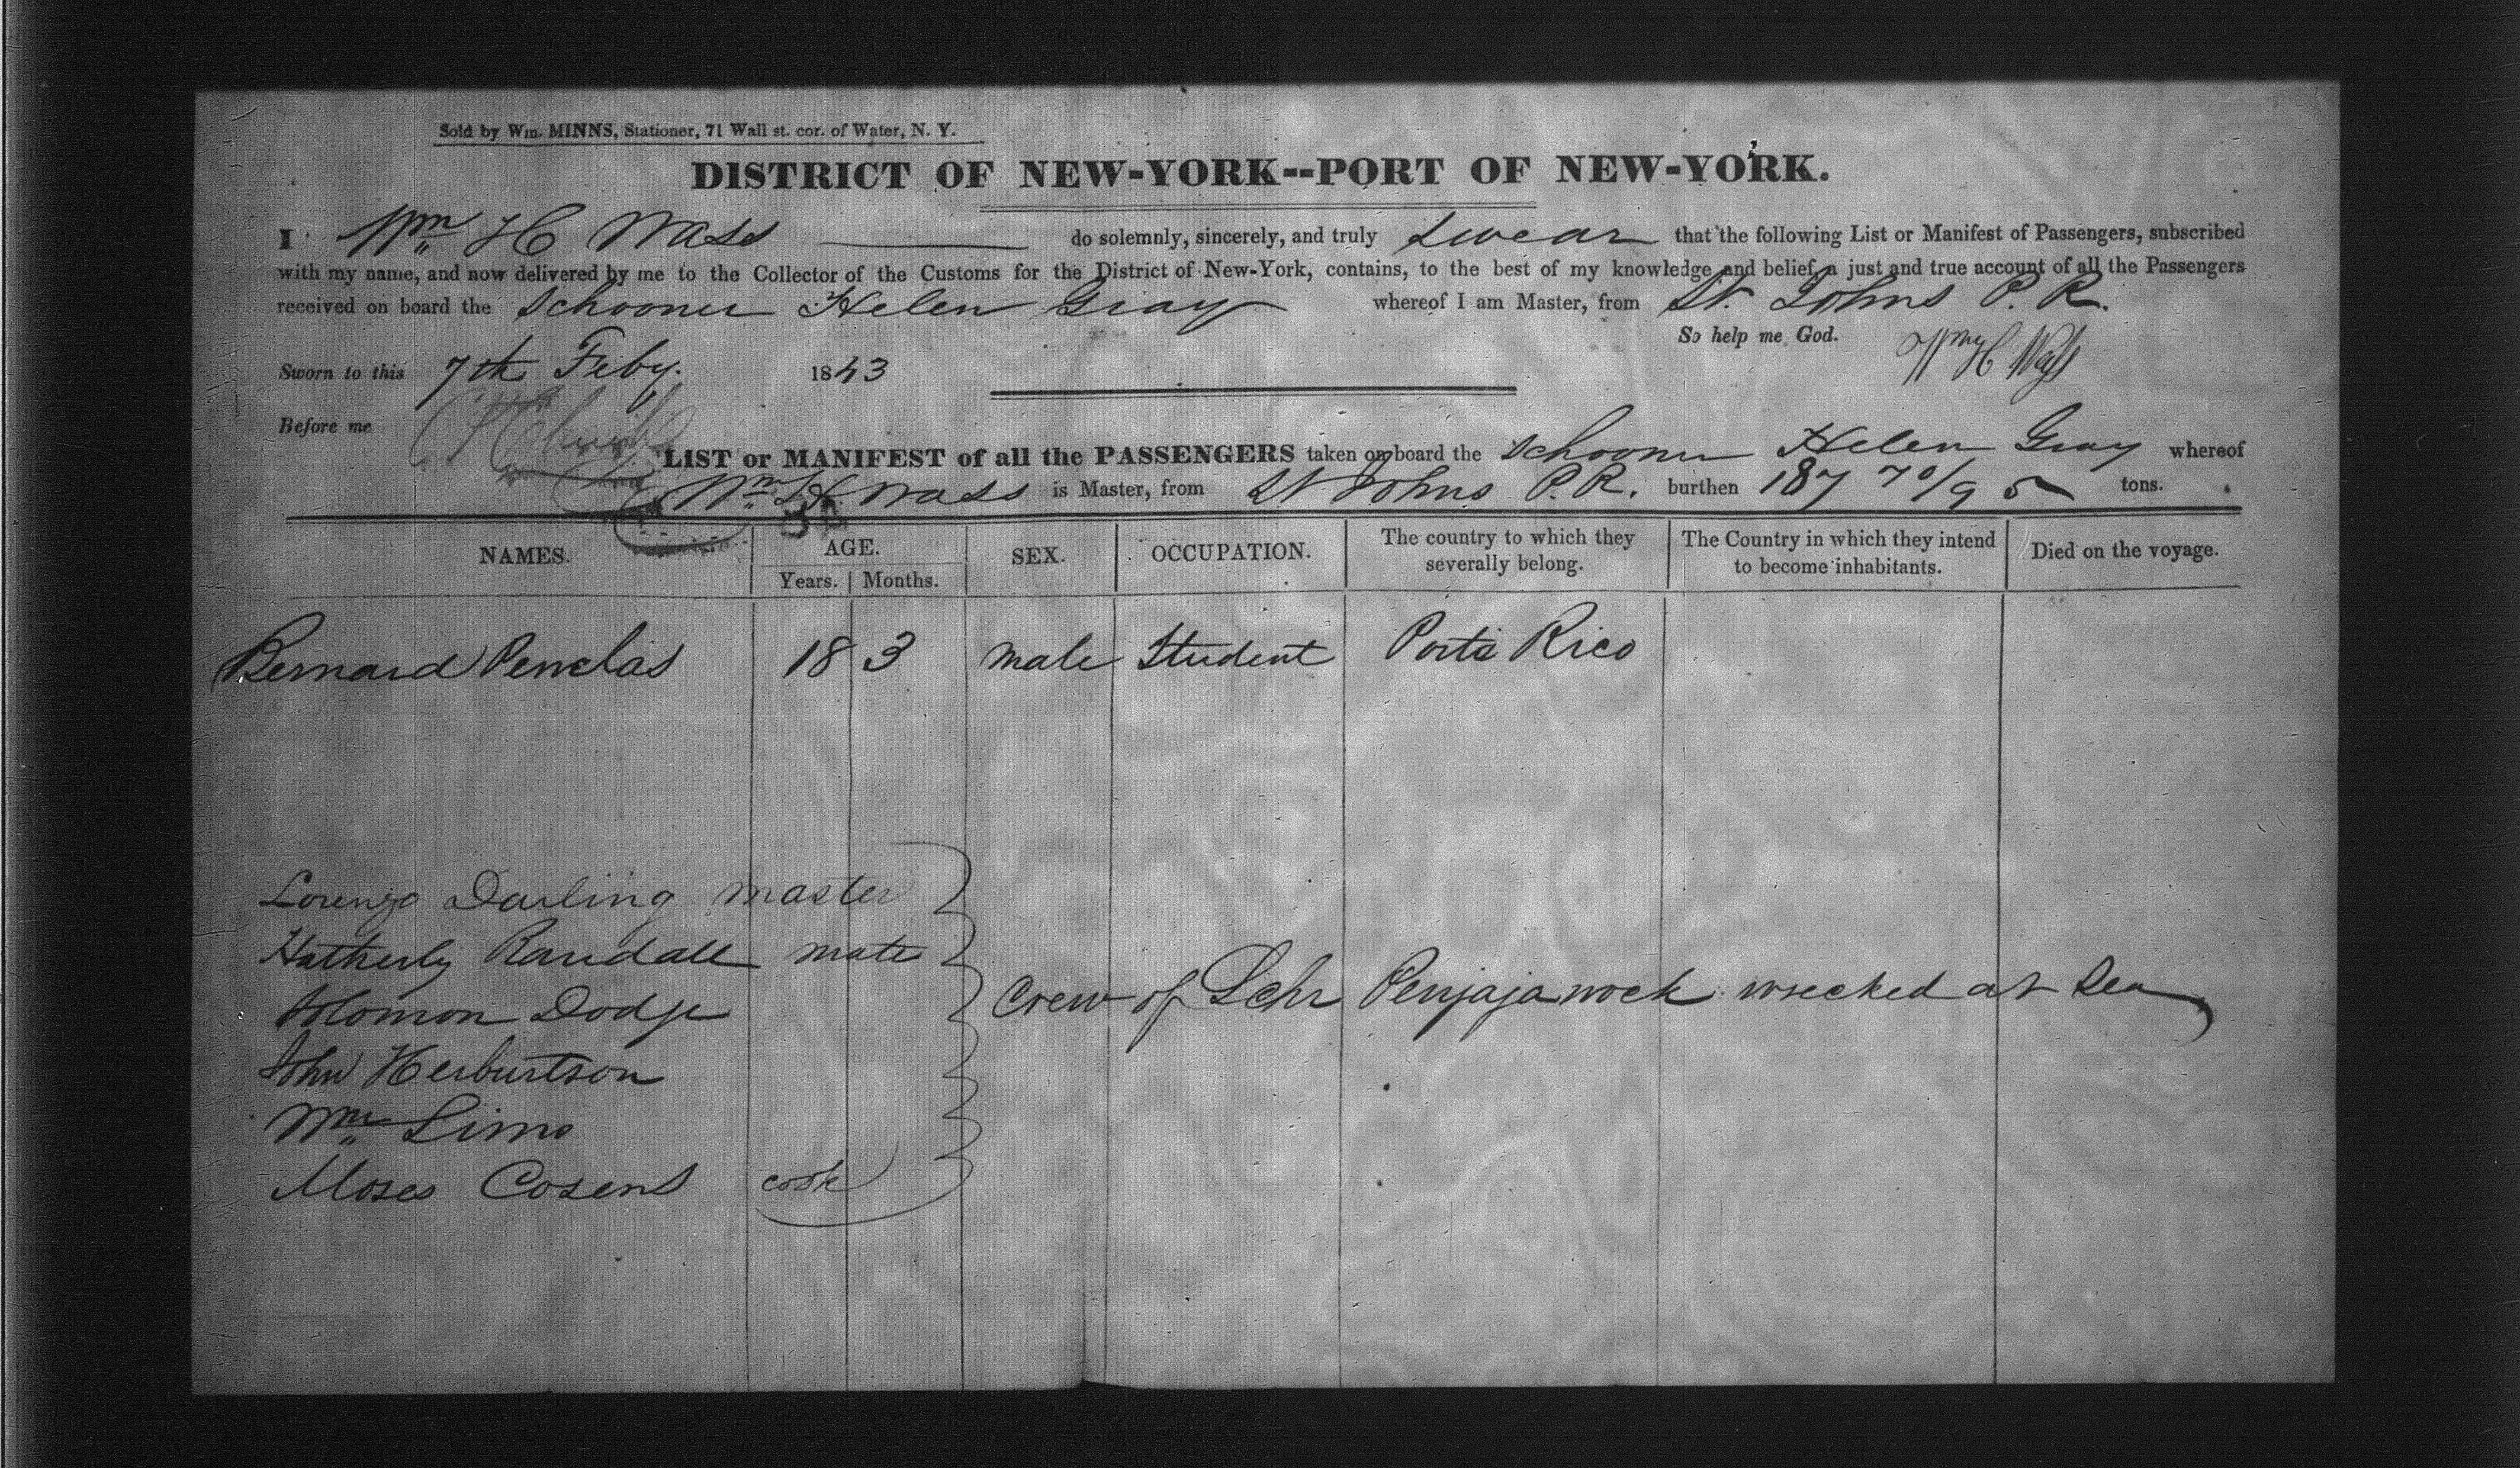 Sold by Wm. MINNS, Stationer, 71 Wall st. cor. of Water, N. Y.
DISTRICT OF NEW-YORK--PORT OF NEW-YORK.
I Wm H Wass do solemnly, sincerely, and truly swear that the following List or Manifest of Passengers, subscribed
with my name, and now delivered by me to the Collector of the Customs for the District of New-York, contains, to the best of my knowledge and belief, a just and true account of all the Passengers
received on board the Schooner Helen Gray whereof I am Master, from St. Johns P. R.
So help me God. Wm H Wass
Sworn to this 7th Feby. 1843
Before me
LIST or MANIFEST of all the PASSENGERS taken on board the Schooner Helen Gray whereof
Wm H Wass is Master, from St Johns P. R. burthen 187 70/95 tons.
NAMES. AGE. Years. Months. SEX. OCCUPATION. The country to which they severally belong. The Country in which they intend to become inhabitants. Died on the voyage.
Bernard Penelas 18 3 male Student Porto Rico
Lorenzo Darling master
Hatherly Randall mate
Solomon Dodge
Crew of Schr wrecked at Sea
John Herburtson
Wm Sims
Moses Cosens cook